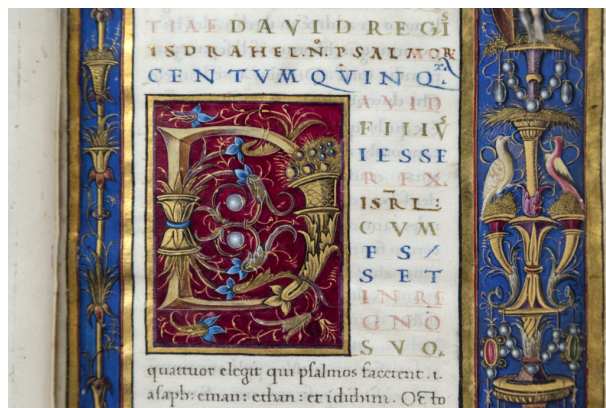 TIAE DAVID REGIS
ISDRAHEL N̄ PSALMOR
CENTVM QVINQ
DAVID
FILIVS
IESSE
REX
ISR̄L:
CVM
ES/
SET
IN RE
GNO
SVO.
quattuor elegit qui psalmos facerent. i.
asaph: eman: ethan: et idithun. Octo